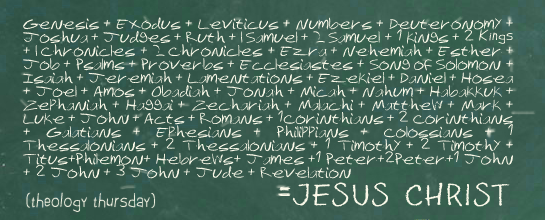 Genesis + Exodus + Leviticus + Numbers + Deuteronomy +
Joshua + Judges + Ruth + 1 Samuel + 2 Samuel + 1 Kings + 2 Kings
+ 1 Chronicles + 2 Chronicles + Ezra + Nehemiah + Esther +
Job + Psalms + Proverbs + Ecclesiastes + Song of Solomon +
Isaiah + Jeremiah + Lamentations + Ezekiel + Daniel + Hosea
+ Joel + Amos + Obadiah + Jonah + Micah + Nahum + Habakkuk +
Zephaniah + Haggai + Zechariah + Malachi + Matthew + Mark +
Luke + John + Acts + Romans + 1 Corinthians + 2 Corinthians
+ Galatians + Ephesians + Philippians + Colossians + 1
Thessalonians + 2 Thessalonians + 1 Timothy + 2 Timothy +
Titus+Philemon+ Hebrews+ James +1 Peter+2Peter+1 John
+ 2 John + 3 John + Jude + Revelation
=JESUS CHRIST
(theology thursday)